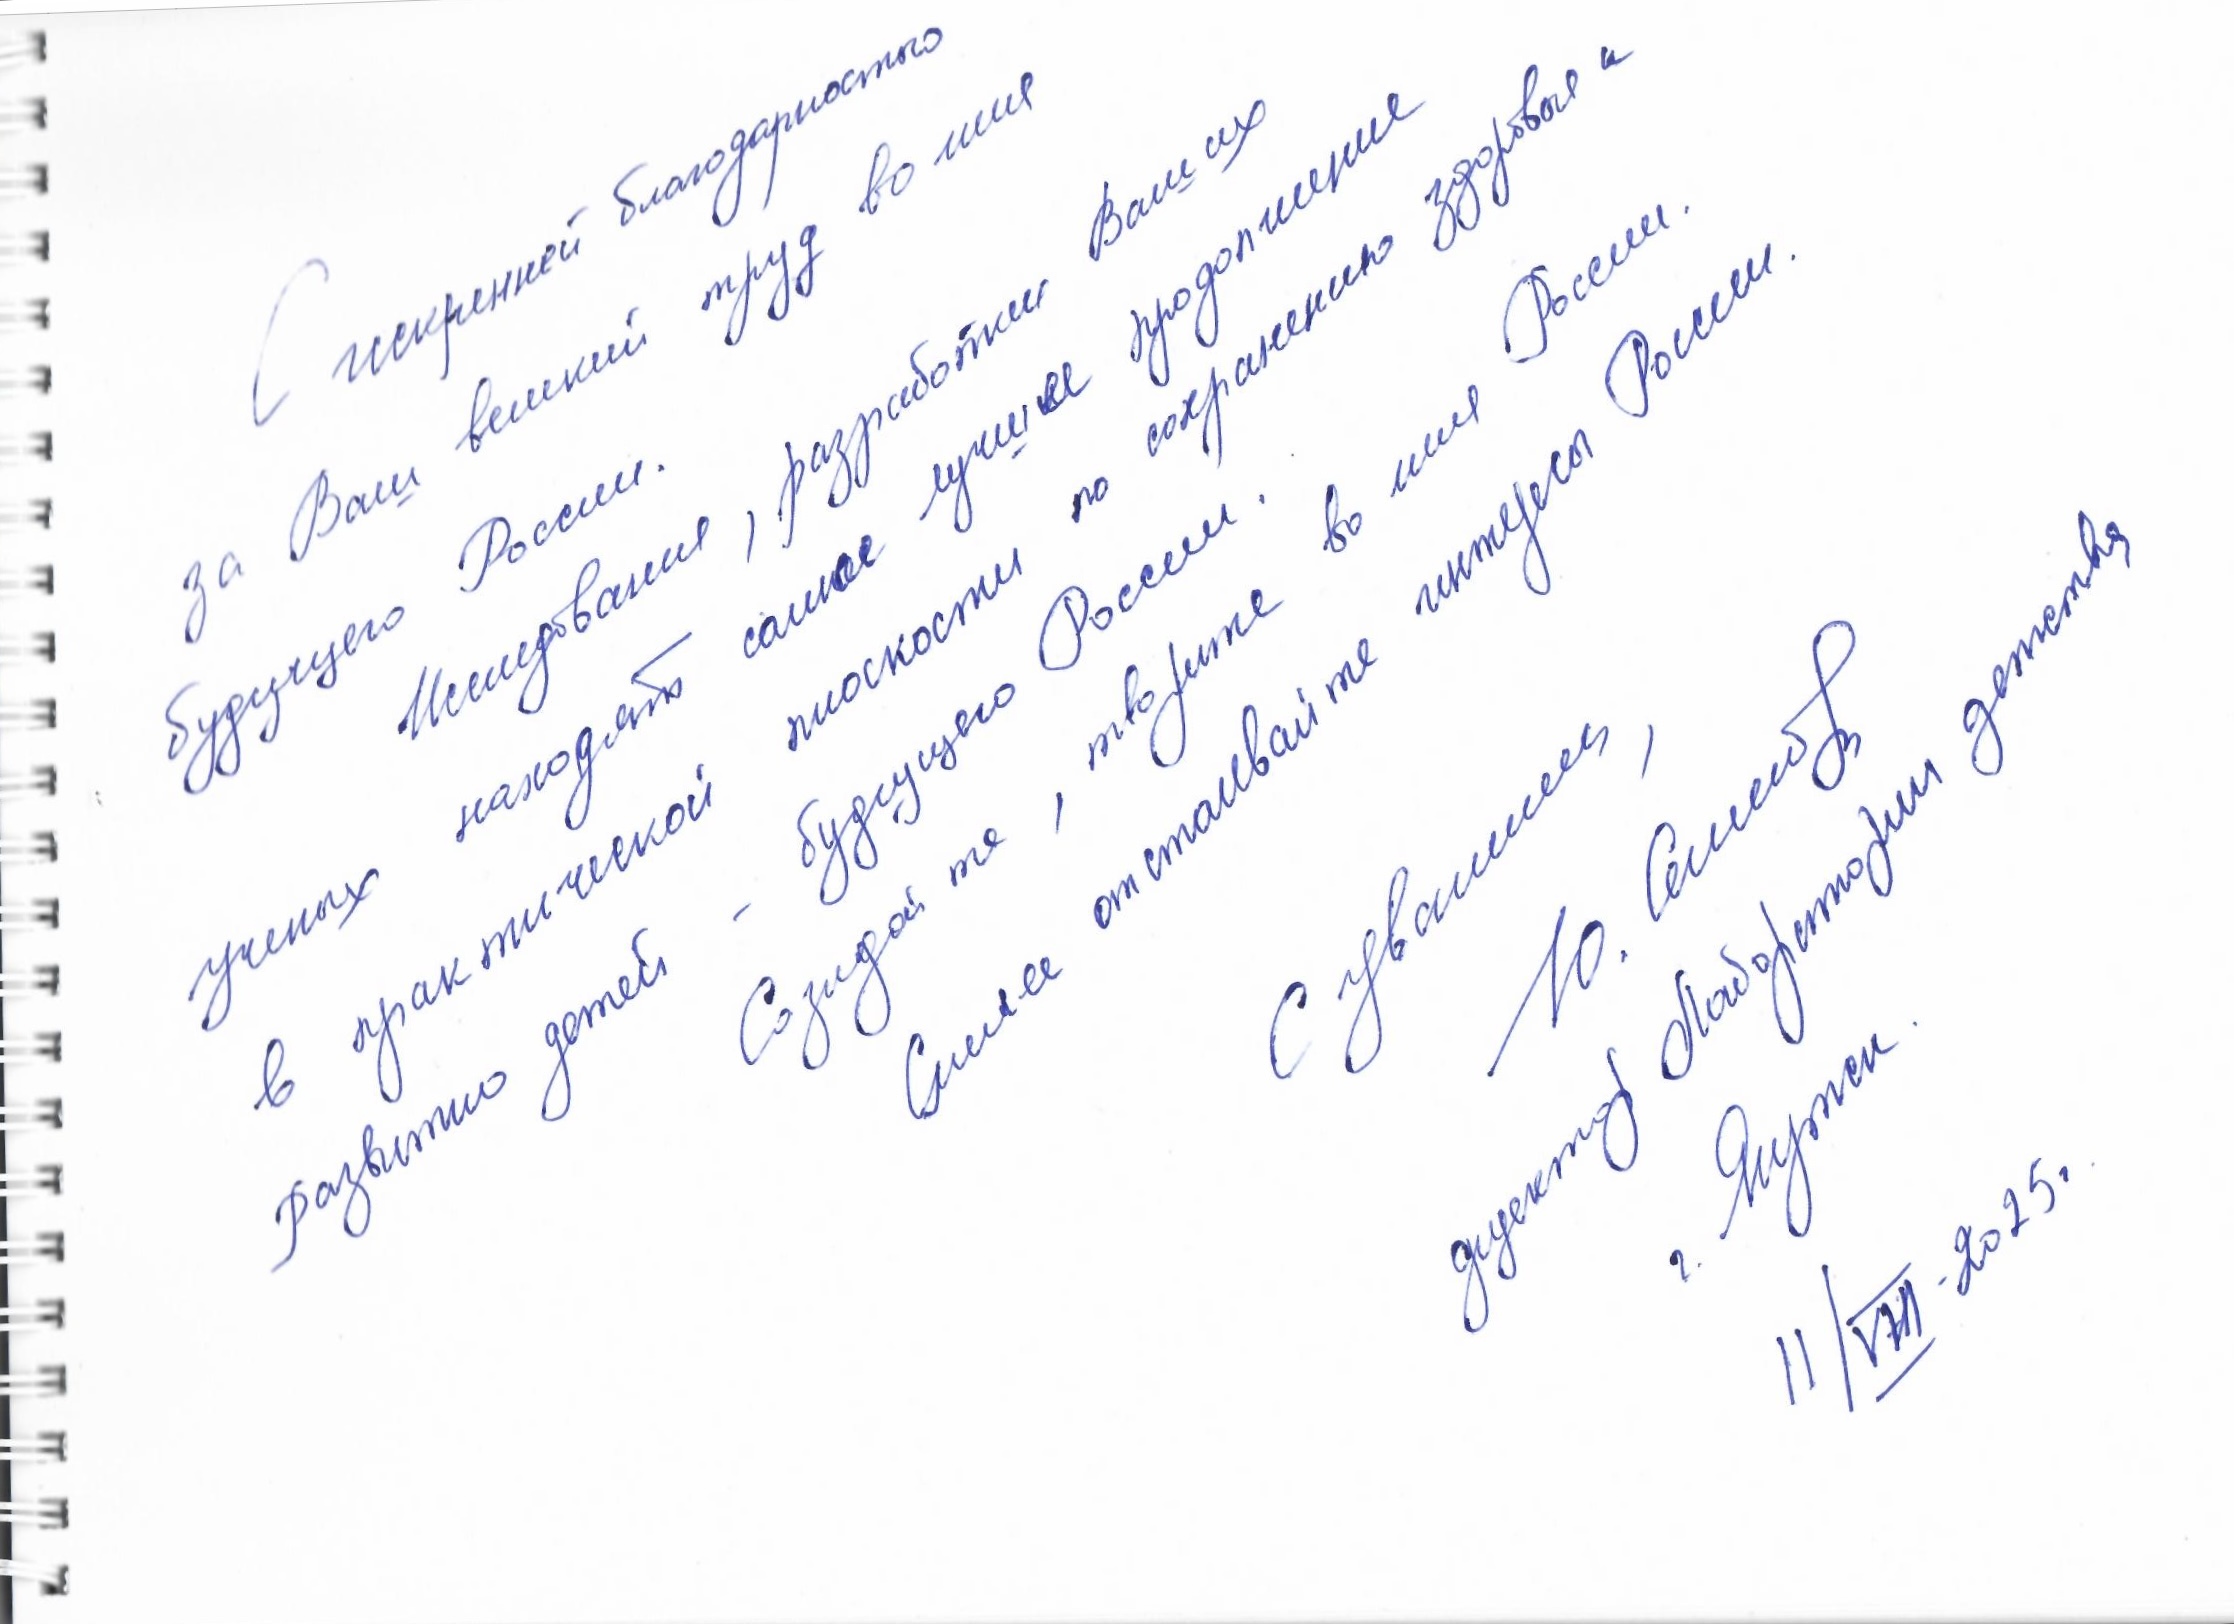 С искренней благодарностью
за Ваш великий труд во имя
будущего России.
Исследования, разработки Ваших
ученых находят самое лучшее продолжение
в практической плоскости по сохранению здоровья и
развитию детей - будущего России.
Созидайте, творите во имя России.
Смело отстаивайте интересы России.
С уважением,
Ю.
директор Лаборатории детства
г. Якутск.
11/VIII-2025г.